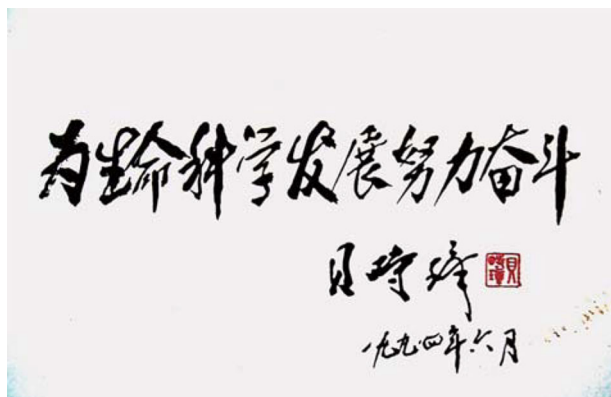 为生命科学发展努力奋斗
贝时璋
一九九四年六月